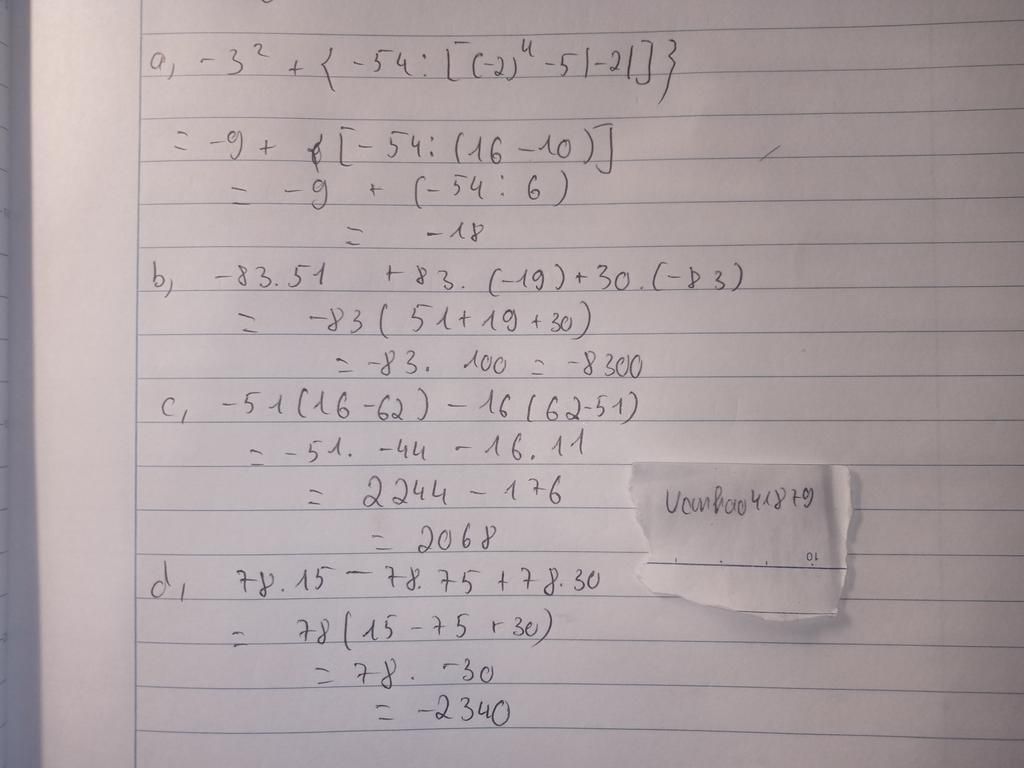 a, -3² + { -54 : [(-2)⁴ -5|-2|]}
= -9 + [- 54: (16 -10)]
= -9 + (-54 : 6)
= -18
b, -83.51 +83. (-19)+30.(-83)
= -83( 51+19+30)
= -83. 100 = -8300
c, -51(16-62) - 16(62-51)
= -51. -44 - 16. 11
= 2244 - 176
= 2068
d, 78.15 - 78.75 + 78.30
= 78(15-75 +30)
= 78. -30
= -2340
Vanbao41879
10